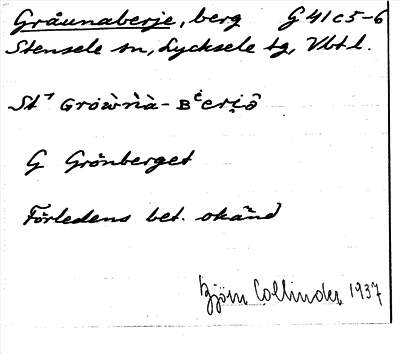 Gråunaberje, berg G 41 c 5-6
Stensele sn, Lycksele tg, Vbtl.
G Grönberget
Förledens bet. okänd
Björn Collinder 1937